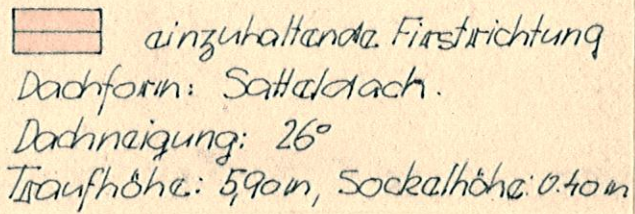 einzuhaltende Firstrichtung
Dachform: Satteldach.
Dachneigung: 26°
Traufhöhe: 5,90m, Sockelhöhe: 0.40m